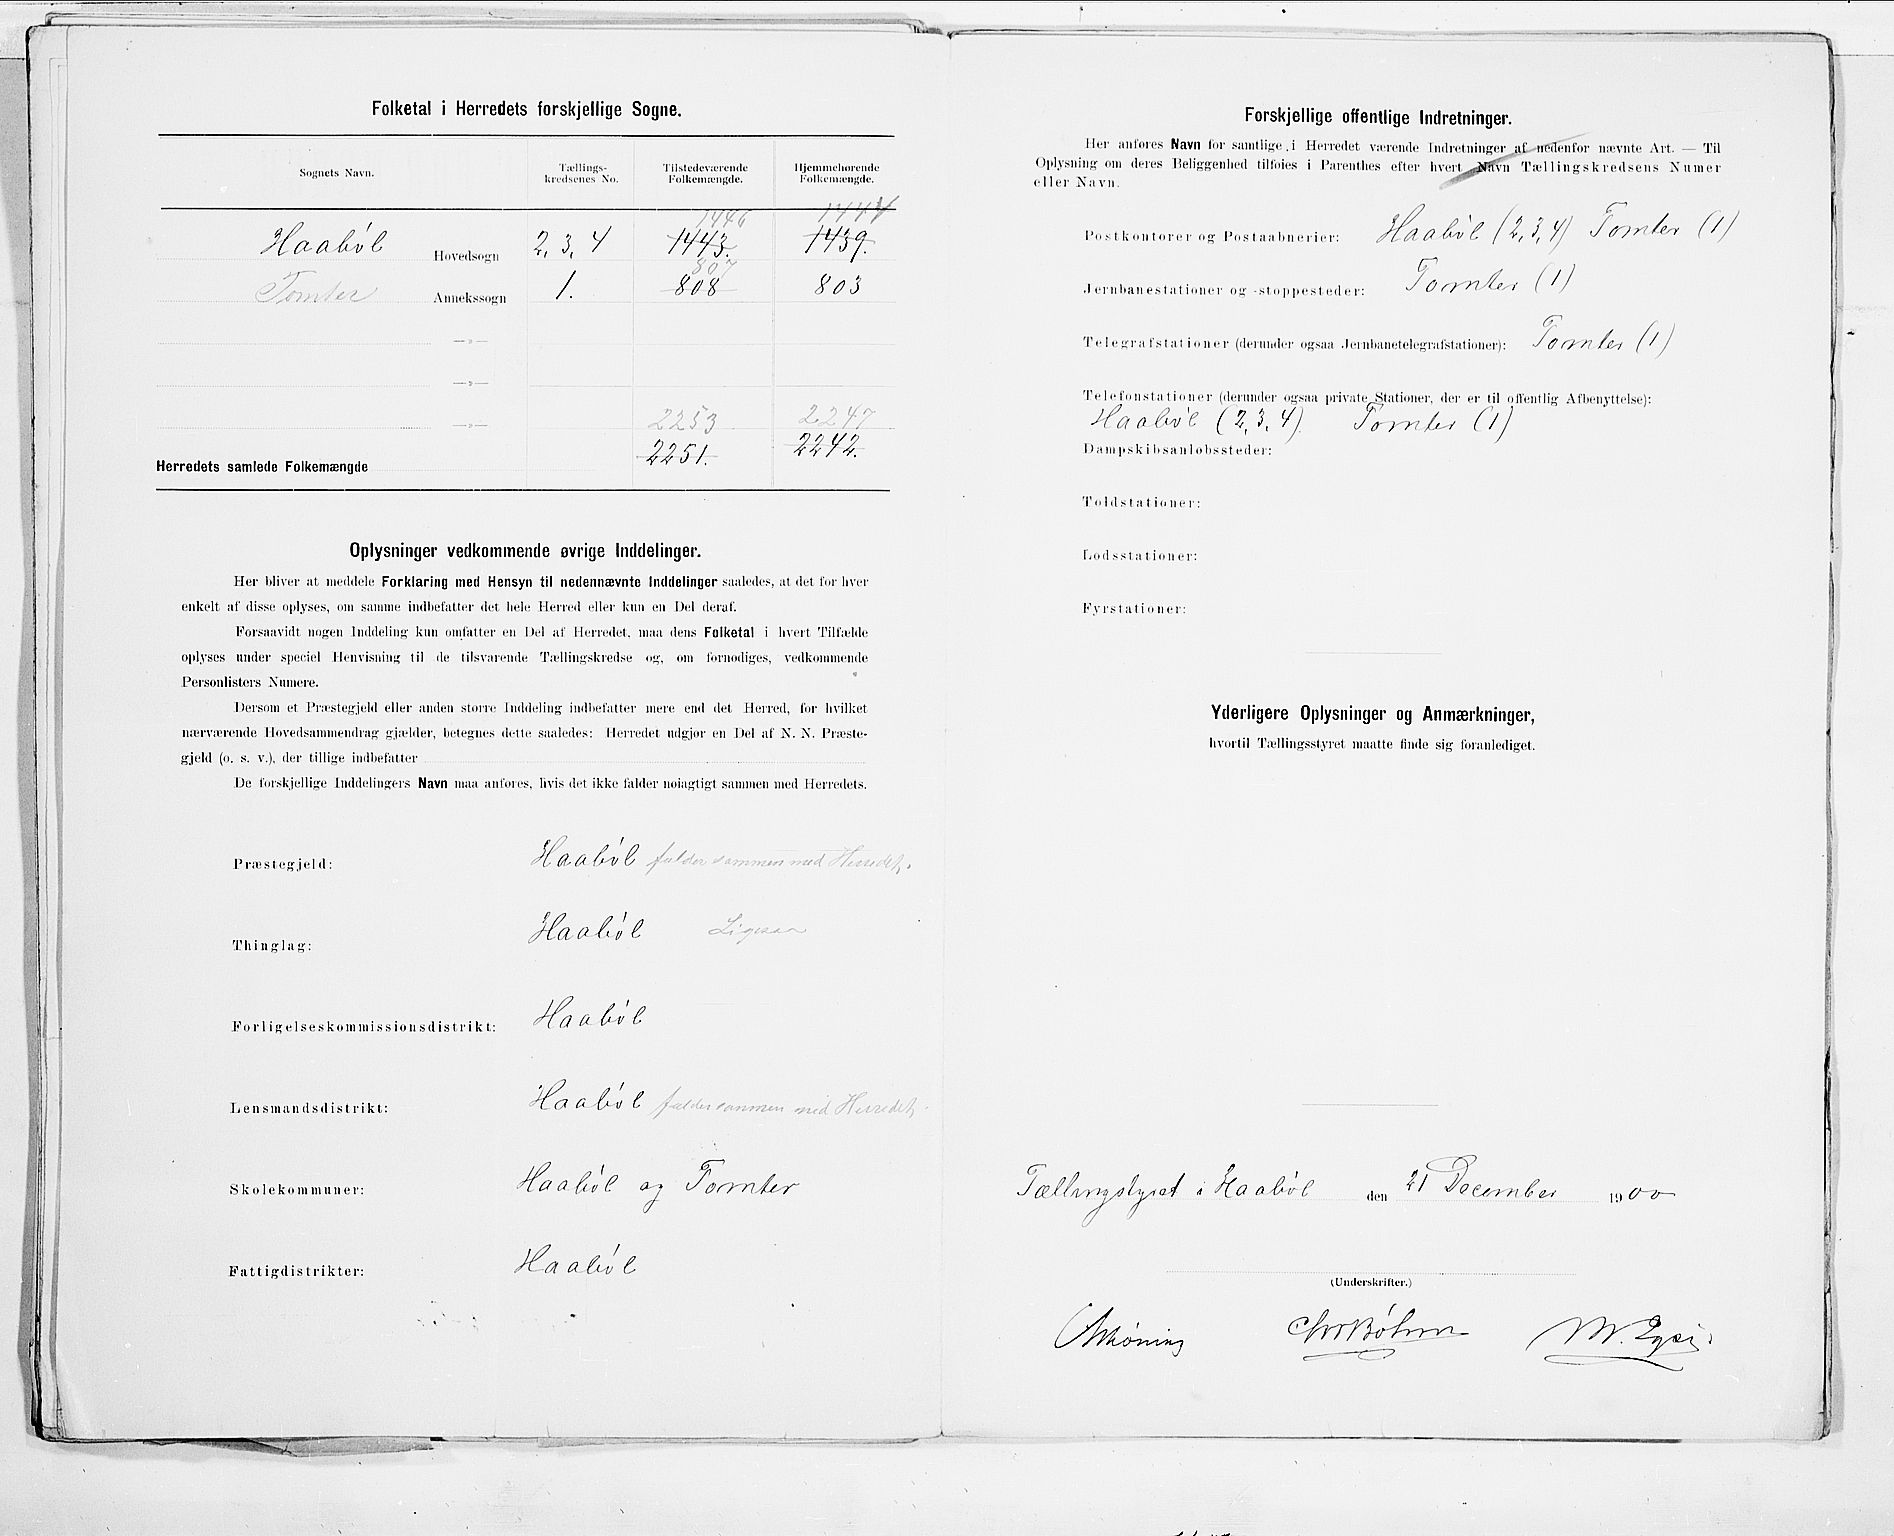 Folketal i Herredets forskjellige Sogne.
Sognets Navn.
Tællings-
kredsenes No.
Tilstedeværende
Folkemængde.
Hjemmehørende
Folkemængde.
1446 1444
Haabøl Hovedsogn 2, 3, 4 1443. 1439.
807
Tomter Annekssogn 1. 808 803
—»—
—»—
2253 2247
—»—
Herredets samlede Folkemængde 2251. 2242.
Oplysninger vedkommende øvrige Inddelinger.
Her bliver at meddele Forklaring med Hensyn til nedennævnte Inddelinger saaledes, at det for hver
enkelt af disse oplyses, om samme indbefatter det hele Herred eller kun en Del deraf.
Forsaavidt nogen Inddeling kun omfatter en Del af Herredet, maa dens Folketal i hvert Tilfælde
oplyses under speciel Henvisning til de tilsvarende Tællingskredse og, om fornødiges, vedkommende
Personlisters Numere.
Dersom et Præstegjeld eller anden større Inddeling indbefatter mere end det Herred, for hvilket
nærværende Hovedsammendrag gjælder, betegnes dette saaledes: Herredet udgjør en Del af N. N. Præste-
gjeld (o. s. v.), der tillige indbefatter
De forskjellige Inddelingers Navn maa anføres, hvis det ikke falder nøiagtigt sammen med Herredets.
Præstegjeld: Haabøl falder sammen med Herredet.
Thinglag: Haabøl Ligesaa
Forligelseskommissionsdistrikt: Haabøl
Lensmandsdistrikt: Haabøl falder sammen med Herredet.
Skolekommuner: Haabøl og Tomter
Fattigdistrikter: Haabøl
Forskjellige offentlige Indretninger.
Her anføres Navn for samtlige i Herredet værende Indretninger af nedenfor nævnte Art. — Til
Oplysning om deres Beliggenhed tilføies i Parenthes efter hvert Navn Tællingskredsens Numer
eller Navn.
Postkontorer og Postaabnerier: Haabøl (2, 3, 4) Tomter (1)
Jernbanestationer og -stoppesteder: Tomter (1)
Telegrafstationer (derunder ogsaa Jernbanetelegrafstationer): Tomter (1)
Telefonstationer (derunder ogsaa private Stationer, der er til offentlig Afbenyttelse):
Haabøl (2, 3, 4) Tomter (1)
Dampskibsanløbssteder:
Toldstationer:
Lodsstationer:
Fyrstationer:
Yderligere Oplysninger og Anmærkninger,
hvortil Tællingsstyret maatte finde sig foranlediget.
Tællingstyret i Haabøl den 21 December 1900
(Underskrifter.)